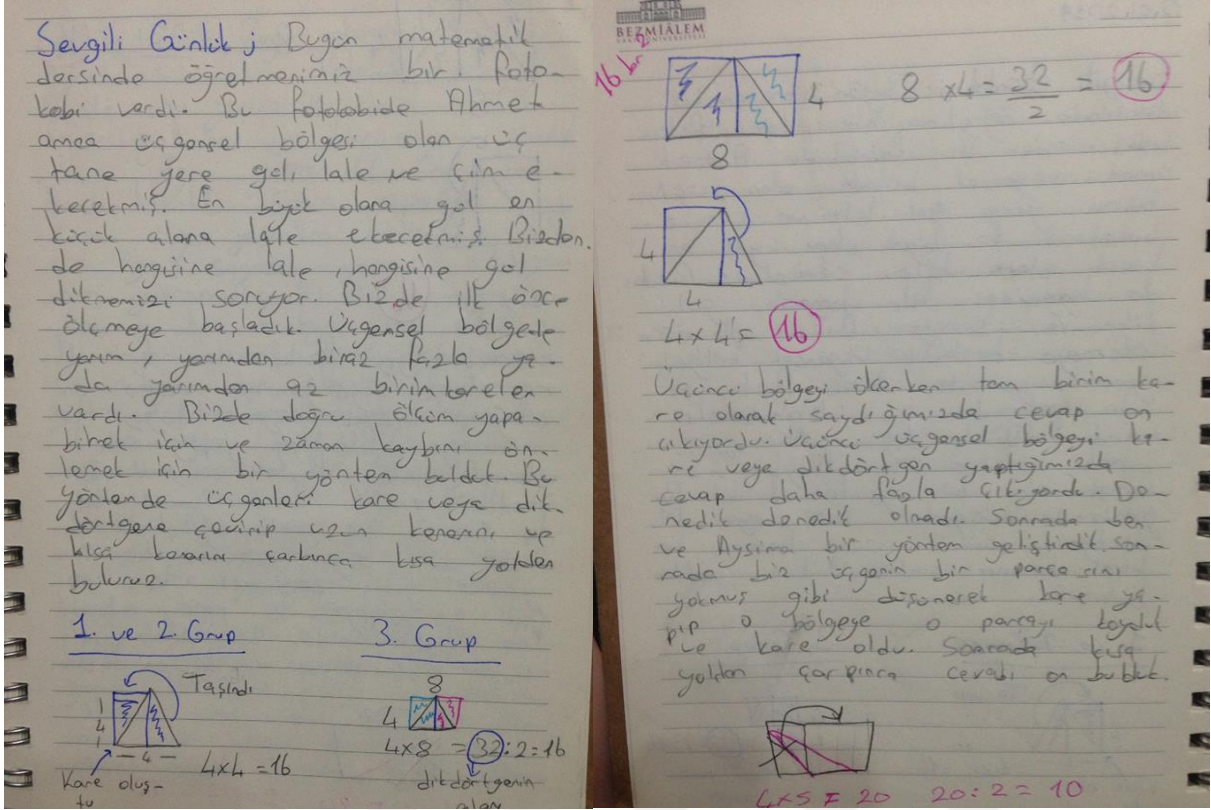 Sevgili Günlük; Bugün matematik
dersinde öğretmenimiz bir foto-
kobi vardı. Bu fotokobide Ahmet
amca üçgensel bölgesi olan üç
tane yere gül, lale ve çim e-
kecekmiş. En büyük olana gül en
küçük alana lale ekecekmiş. Bizden
de hangisine lale, hangisine gül
dikmemizi soruyor. Bizde ilk önce
ölçmeye başladık. Üçgensel bölgede
yarım, yarımdan biraz fazla ya
da yarımdan az birimkareler
vardı. Bizde doğru ölçüm yapa-
bilmek için ve zaman kaybını ön-
lemek için bir yöntem bulduk. Bu
yöntemde üçgenleri kare veya dik-
dörtgene çevirip uzun kenarını ve
kısa kenarını çarpınca kısa yoldan
buluruz.
1. ve 2. Grup
Taşındı
1
4
1
4
4x4=16
Kare oluş-
tu
3. Grup
8
4
4x8 = 32:2=16
dikdörtgenin
alanı
BEZMİÂLEM
16 br2
4
8
8 x4= 32/2 = 16
4
4
4x4= 16
Üçüncü bölgeyi ölçerken tam birim ka-
re olarak saydığımızda cevap on
çıkıyordu. Üçüncü üçgensel bölgeyi ka-
re veya dikdörtgen yaptığımızda
cevap daha fazla çıkıyordu. De-
nedik denedik olmadı. Sonrada ben
ve Aysima bir yöntem geliştirdik. son-
rada biz üçgenin bir parçasını
yokmuş gibi düşünerek kare ya-
pıp o bölgeye o parçayı koyduk
ve kare oldu. Sonrada kısa
yoldan çarpınca cevabı on bulduk.
4x5 = 20 20:2 = 10